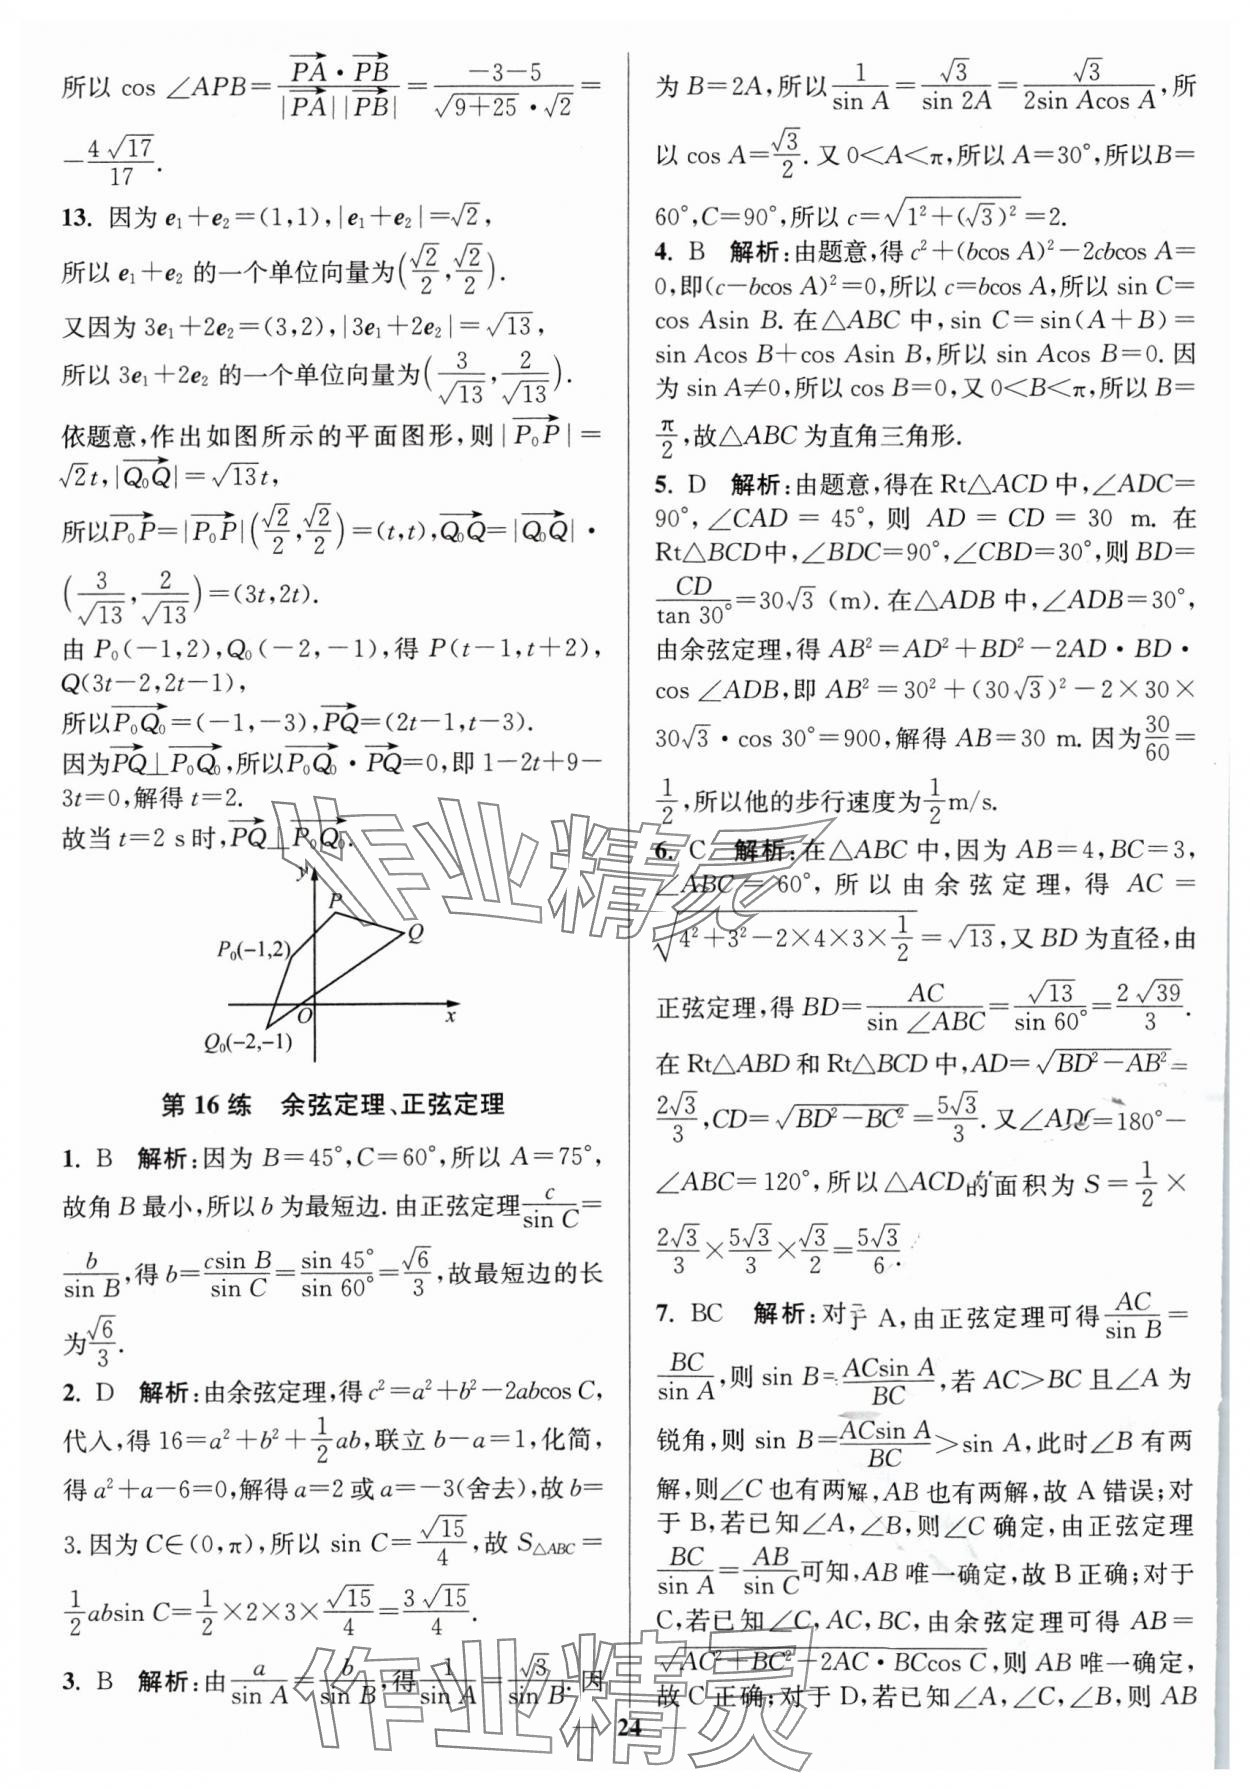 所以 cos ∠APB=\frac{\overrightarrow{PA}·\overrightarrow{PB}}{|\overrightarrow{PA}||\overrightarrow{PB}|}=\frac{-3-5}{\sqrt{9+25}·\sqrt{2}}=
-\frac{4\sqrt{17}}{17}.
13. 因为 e₁+e₂=(1,1),|e₁+e₂|=√2,
所以 e₁+e₂ 的一个单位向量为(\frac{\sqrt{2}}{2},\frac{\sqrt{2}}{2}).
又因为 3e₁+2e₂=(3,2),|3e₁+2e₂|=√13,
所以 3e₁+2e₂ 的一个单位向量为(\frac{3}{\sqrt{13}},\frac{2}{\sqrt{13}}).
依题意,作出如图所示的平面图形,则|\overrightarrow{P₀P}|=
√2t,|\overrightarrow{Q₀Q}|=√13t,
所以\overrightarrow{P₀P}=|\overrightarrow{P₀P}|(\frac{\sqrt{2}}{2},\frac{\sqrt{2}}{2})=(t,t),\overrightarrow{Q₀Q}=|\overrightarrow{Q₀Q}|·
(\frac{3}{\sqrt{13}},\frac{2}{\sqrt{13}})=(3t,2t).
由 P₀(-1,2),Q₀(-2,-1),得 P(t-1,t+2),
Q(3t-2,2t-1),
所以\overrightarrow{P₀Q₀}=(-1,-3),\overrightarrow{PQ}=(2t-1,t-3).
因为\overrightarrow{PQ}⊥\overrightarrow{P₀Q₀},所以\overrightarrow{P₀Q₀}·\overrightarrow{PQ}=0,即 1-2t+9-
3t=0,解得 t=2.
故当 t=2 s 时,\overrightarrow{PQ}⊥\overrightarrow{P₀Q₀}.
y
P
Q
P₀(-1,2)
O
x
Q₀(-2,-1)
第 16 练 余弦定理、正弦定理
1. B 解析:因为 B=45°,C=60°,所以 A=75°,
故角 B 最小,所以 b 为最短边.由正弦定理\frac{c}{sin C}=
\frac{b}{sin B},得 b=\frac{csin B}{sin C}=\frac{sin 45°}{sin 60°}=\frac{\sqrt{6}}{3},故最短边的长
为\frac{\sqrt{6}}{3}.
2. D 解析:由余弦定理,得 c²=a²+b²-2abcos C,
代入,得 16=a²+b²+\frac{1}{2}ab,联立 b-a=1,化简,
得 a²+a-6=0,解得 a=2 或 a=-3(舍去),故 b=
3.因为 C∈(0,π),所以 sin C=\frac{\sqrt{15}}{4},故 S△ABC=
\frac{1}{2}absin C=\frac{1}{2}×2×3×\frac{\sqrt{15}}{4}=\frac{3\sqrt{15}}{4}.
3. B 解析:由\frac{a}{sin A}=\frac{b}{sin B},得\frac{1}{sin A}=\frac{\sqrt{3}}{sin B}.因
为 B=2A,所以\frac{1}{sin A}=\frac{\sqrt{3}}{sin 2A}=\frac{\sqrt{3}}{2sin Acos A},所
以 cos A=\frac{\sqrt{3}}{2}.又 0<A<π,所以 A=30°,所以 B=
60°,C=90°,所以 c=\sqrt{1²+(\sqrt{3})²}=2.
4. B 解析:由题意,得 c²+(bcos A)²-2cbcos A=
0,即(c-bcos A)²=0,所以 c=bcos A,所以 sin C=
cos Asin B.在△ABC 中,sin C=sin(A+B)=
sin Acos B+cos Asin B,所以 sin Acos B=0.因
为 sin A≠0,所以 cos B=0,又 0<B<π,所以 B=
\frac{π}{2},故△ABC 为直角三角形.
5. D 解析:由题意,得在 Rt△ACD 中,∠ADC=
90°,∠CAD=45°,则 AD=CD=30 m.在
Rt△BCD中,∠BDC=90°,∠CBD=30°,则 BD=
\frac{CD}{tan 30°}=30√3 (m).在△ADB 中,∠ADB=30°,
由余弦定理,得 AB²=AD²+BD²-2AD·BD·
cos ∠ADB,即 AB²=30²+(30√3)²-2×30×
30√3·cos 30°=900,解得 AB=30 m.因为\frac{30}{60}=
\frac{1}{2},所以他的步行速度为\frac{1}{2}m/s.
6. C 解析:在△ABC 中,因为 AB=4,BC=3,
∠ABC=60°,所以由余弦定理,得 AC=
\sqrt{4²+3²-2×4×3×\frac{1}{2}}=√13,又 BD 为直径,由
正弦定理,得 BD=\frac{AC}{sin ∠ABC}=\frac{\sqrt{13}}{sin 60°}=\frac{2\sqrt{39}}{3}.
在 Rt△ABD 和 Rt△BCD 中,AD=\sqrt{BD²-AB²}=
\frac{2\sqrt{3}}{3},CD=\sqrt{BD²-BC²}=\frac{5\sqrt{3}}{3}.又∠ADC=180°-
∠ABC=120°,所以△ACD的面积为 S=\frac{1}{2}×
\frac{2\sqrt{3}}{3}×\frac{5\sqrt{3}}{3}×\frac{\sqrt{3}}{2}=\frac{5\sqrt{3}}{6}.
7. BC 解析:对于 A,由正弦定理可得\frac{AC}{sin B}=
\frac{BC}{sin A},则 sin B=\frac{ACsin A}{BC},若 AC>BC 且∠A 为
锐角,则 sin B=\frac{ACsin A}{BC}>sin A,此时∠B 有两
解,则∠C 也有两解,AB 也有两解,故 A 错误;对
于 B,若已知∠A,∠B,则∠C 确定,由正弦定理
\frac{BC}{sin A}=\frac{AB}{sin C}可知,AB 唯一确定,故 B 正确;对于
C,若已知∠C,AC,BC,由余弦定理可得 AB=
\sqrt{AC²+BC²-2AC·BCcos C},则 AB 唯一确定,
故 C 正确;对于 D,若已知∠A,∠C,∠B,则 AB
— 24 —
作业精灵
作业精灵